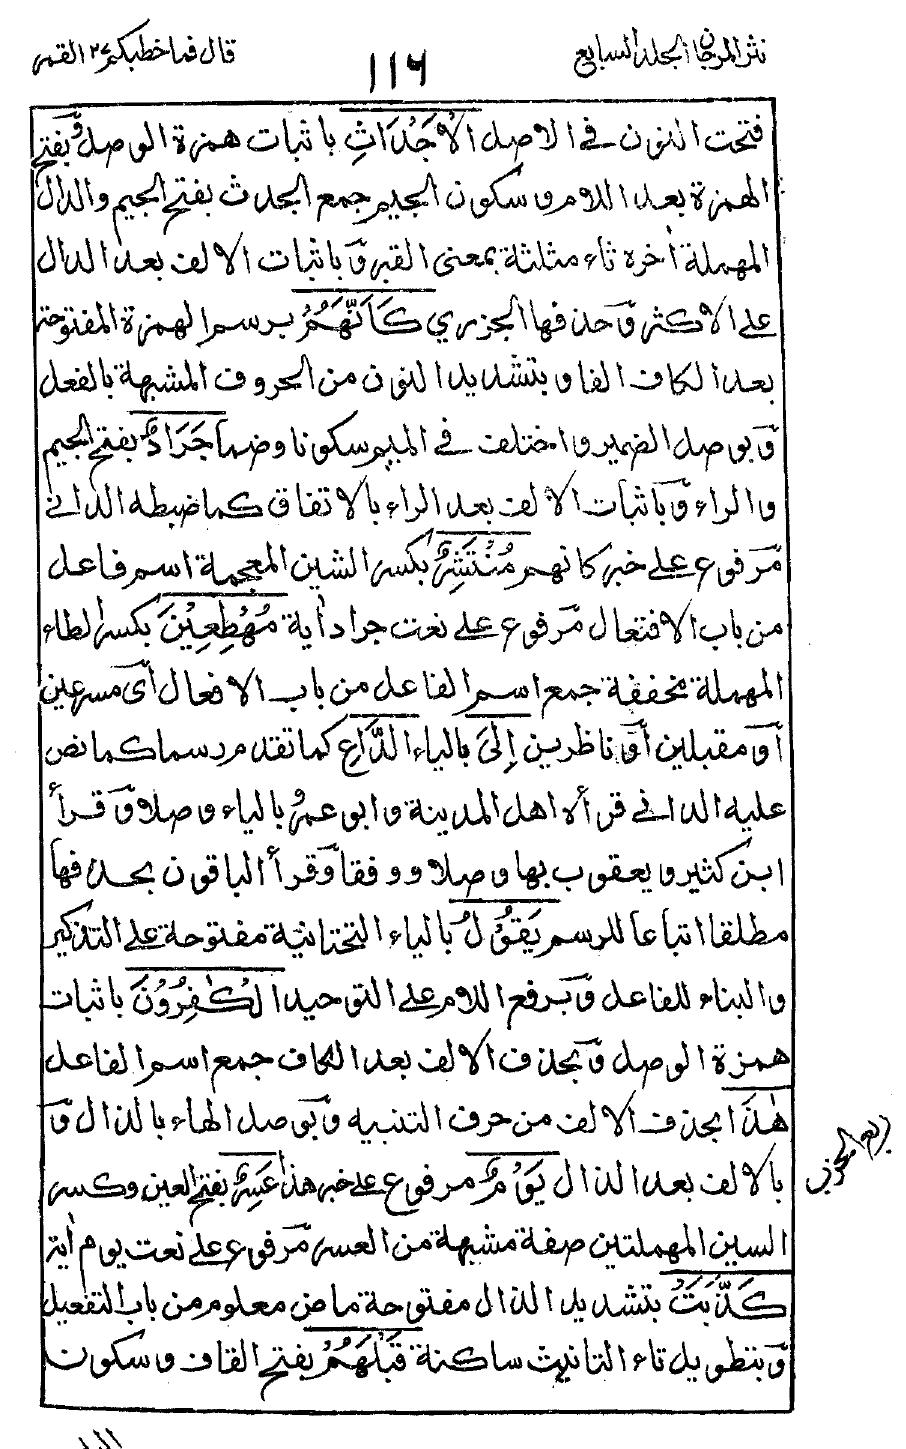 نثر المرجان المجلد السابع
١١٦
قال فما خطبكم ٢٧ القمر
فتحت النون في الاصل الْأَجْدَاثِ باثبات همزة الوصل وبفتح
الهمزة بعد اللام وسكون الجيم جمع الجدث بفتح الجيم والدال
المهملة اٰخره ثاء مثلثة بمعنى القبر وباثبات الالف بعد الدال
على الاكثر وحذفها الجزري كَأَنَّهُمْ برسم الهمزة المفتوحة
بعد الكاف الفا وبتشديد النون من الحروف المشبهة بالفعل
وبوصل الضمير واختلف في الميم سكونا وضما جَرَادٌ بفتح الجيم
والراء وباثبات الالف بعد الراء بالاتفاق كما ضبطه الداني
مرفوع على خبر كانهم مُنْتَشِرٌ بكسر الشين المعجمة اسم فاعل
من باب الافتعال مرفوع على نعت جراد اٰية مُهْطِعِيْنَ بكسر الطاء
المهملة مخففة جمع اسم الفاعل من باب الافعال أى مسرعين
أو مقبلين أو ناظرين إِلَى بالياء الدَّاعِ كما تقدم رسما كما نص
عليه الداني قرأه اهل المدينة وابو عمرو بالياء وصلا وقرأ
ابن كثير ويعقوب بها وصلا ووفقا وقرأ الباقون بحذفها
مطلقا اتباعا للرسم يَقُوْلُ بالياء التحتانية مفتوحة على التذكير
والبناء للفاعل وبرفع اللام على التوحيد الْكٰفِرُوْنَ باثبات
همزة الوصل وبحذف الالف بعد الكاف جمع اسم الفاعل
هٰذَا بحذف الالف من حرف التنبيه وبوصل الهاء بالذال و
بالالف بعد الذال يَوْمٌ مرفوع على خبر هذا عَسِرٌ بفتح العين وكسر
السين المهملتين صفة مشبهة من العسر مرفوع على نعت يوم اٰية
كَذَّبَتْ بتشديد الذال مفتوحة ماض معلوم من باب التفعيل
وبتطويل تاء التانيث ساكنة قَبْلَهُمْ بفتح القاف وسكون